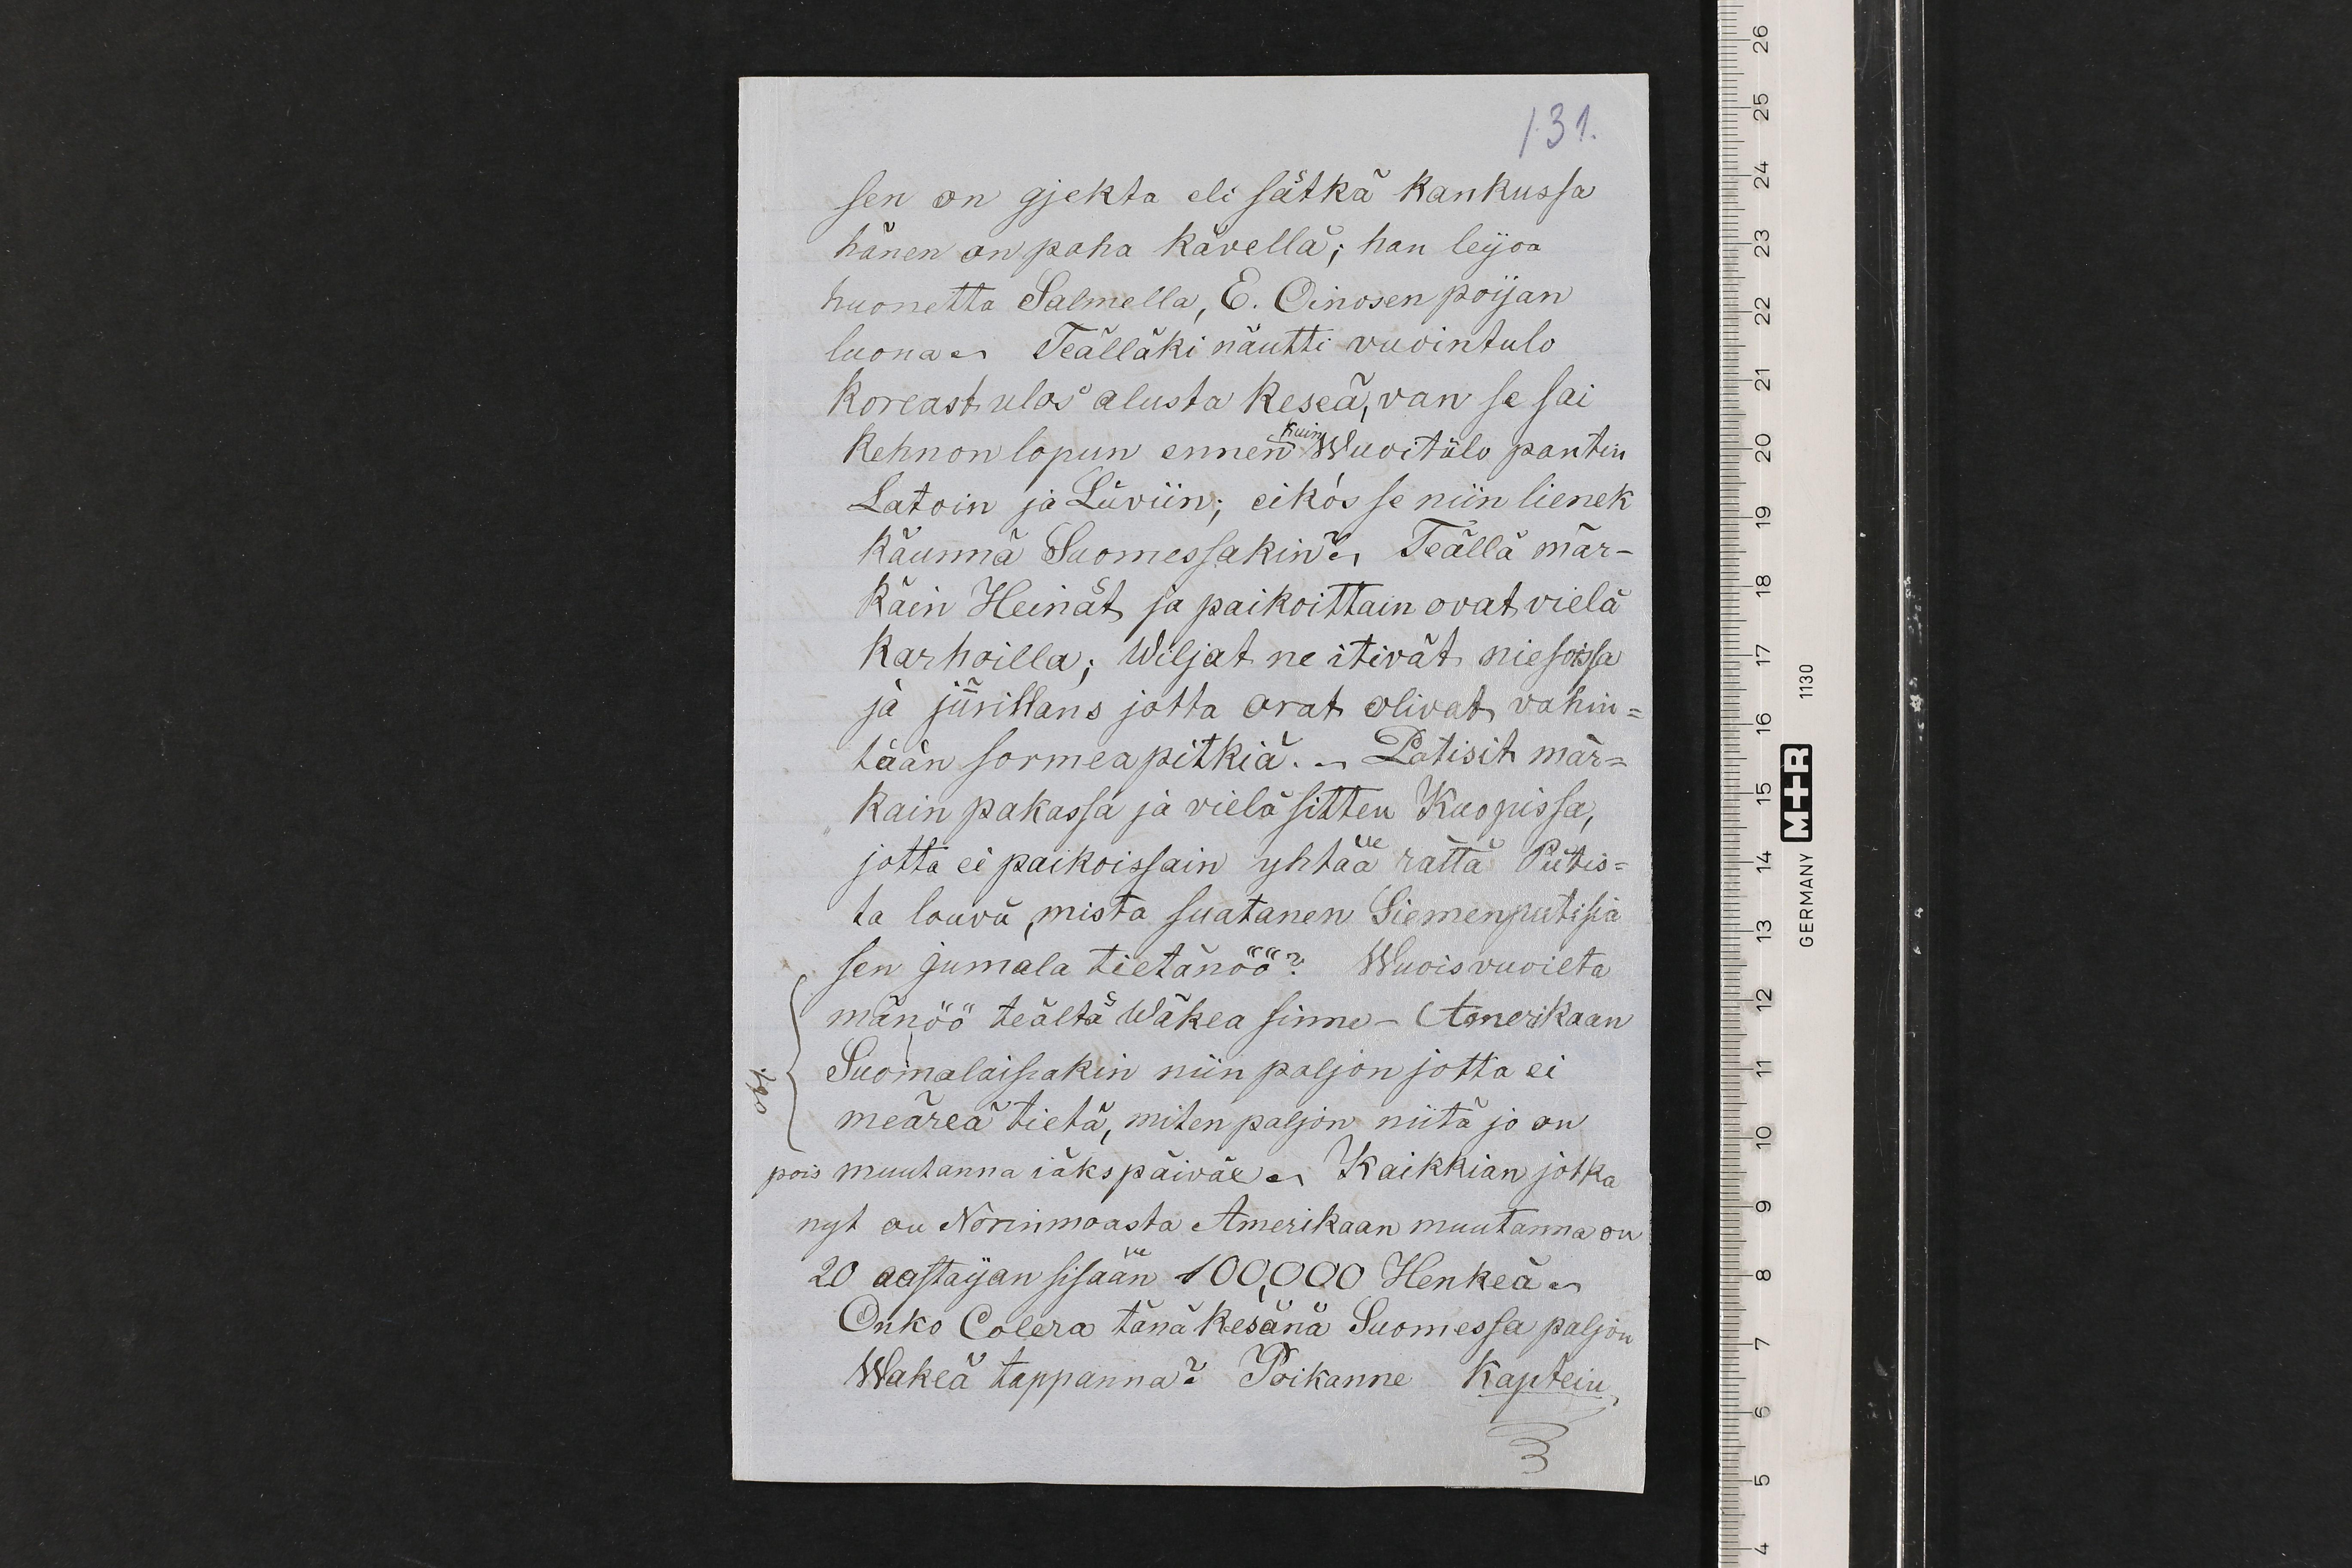 131.
sen on gjekta eli sätkä kankussa
hänen on paha kävellä; han leijoa
huonetta Salmella, E. Oinosen poijan
luona. Teälläki näutti vuointulo
koreast ulos alusta keseä, van se sai
kehnon lopun ennen kuin Wuoitulo pantiin
Latoin ja Lüviin; eikös se niin lienek
käunnä Suomessakin? Teällä mär-
käin Heinät ja paikoittain ovat vielä
karhoilla; Wiljat ne itivät niesoissa
ja jürillans jotta orat olivat vahin=
tään sormea pitkiä. Patisit mär=
kain pakassa ja vielä sitten Kuopissa,
jotta ei paikoissain yhtää rättä Püties=
ta louvä, mista suatanen Siemenputisia
sen Jumala tietänöö? Wuoisvuoilta
mänöö teältä Wäkea sinne - Amerikaan
Suomalaisiakin niin paljon jotta ei
meäreä tietä, miten paljon niitä jo on
pois muutanna iäks päiväe. Kaikkian jotka
nyt on Norinmoasta Amerikaan muutanna on
20 aastaijan sisään 100,000 Henkeä
Onko Colera tänä kesänä Suomessa paljon
Wakeä tappanna? Poikanne Kaptein
26
25
24
23
22
21
20
19
18
17
16
15
14
13
12
11
10
9
8
7
6
5
4
GERMANY M+R 1130